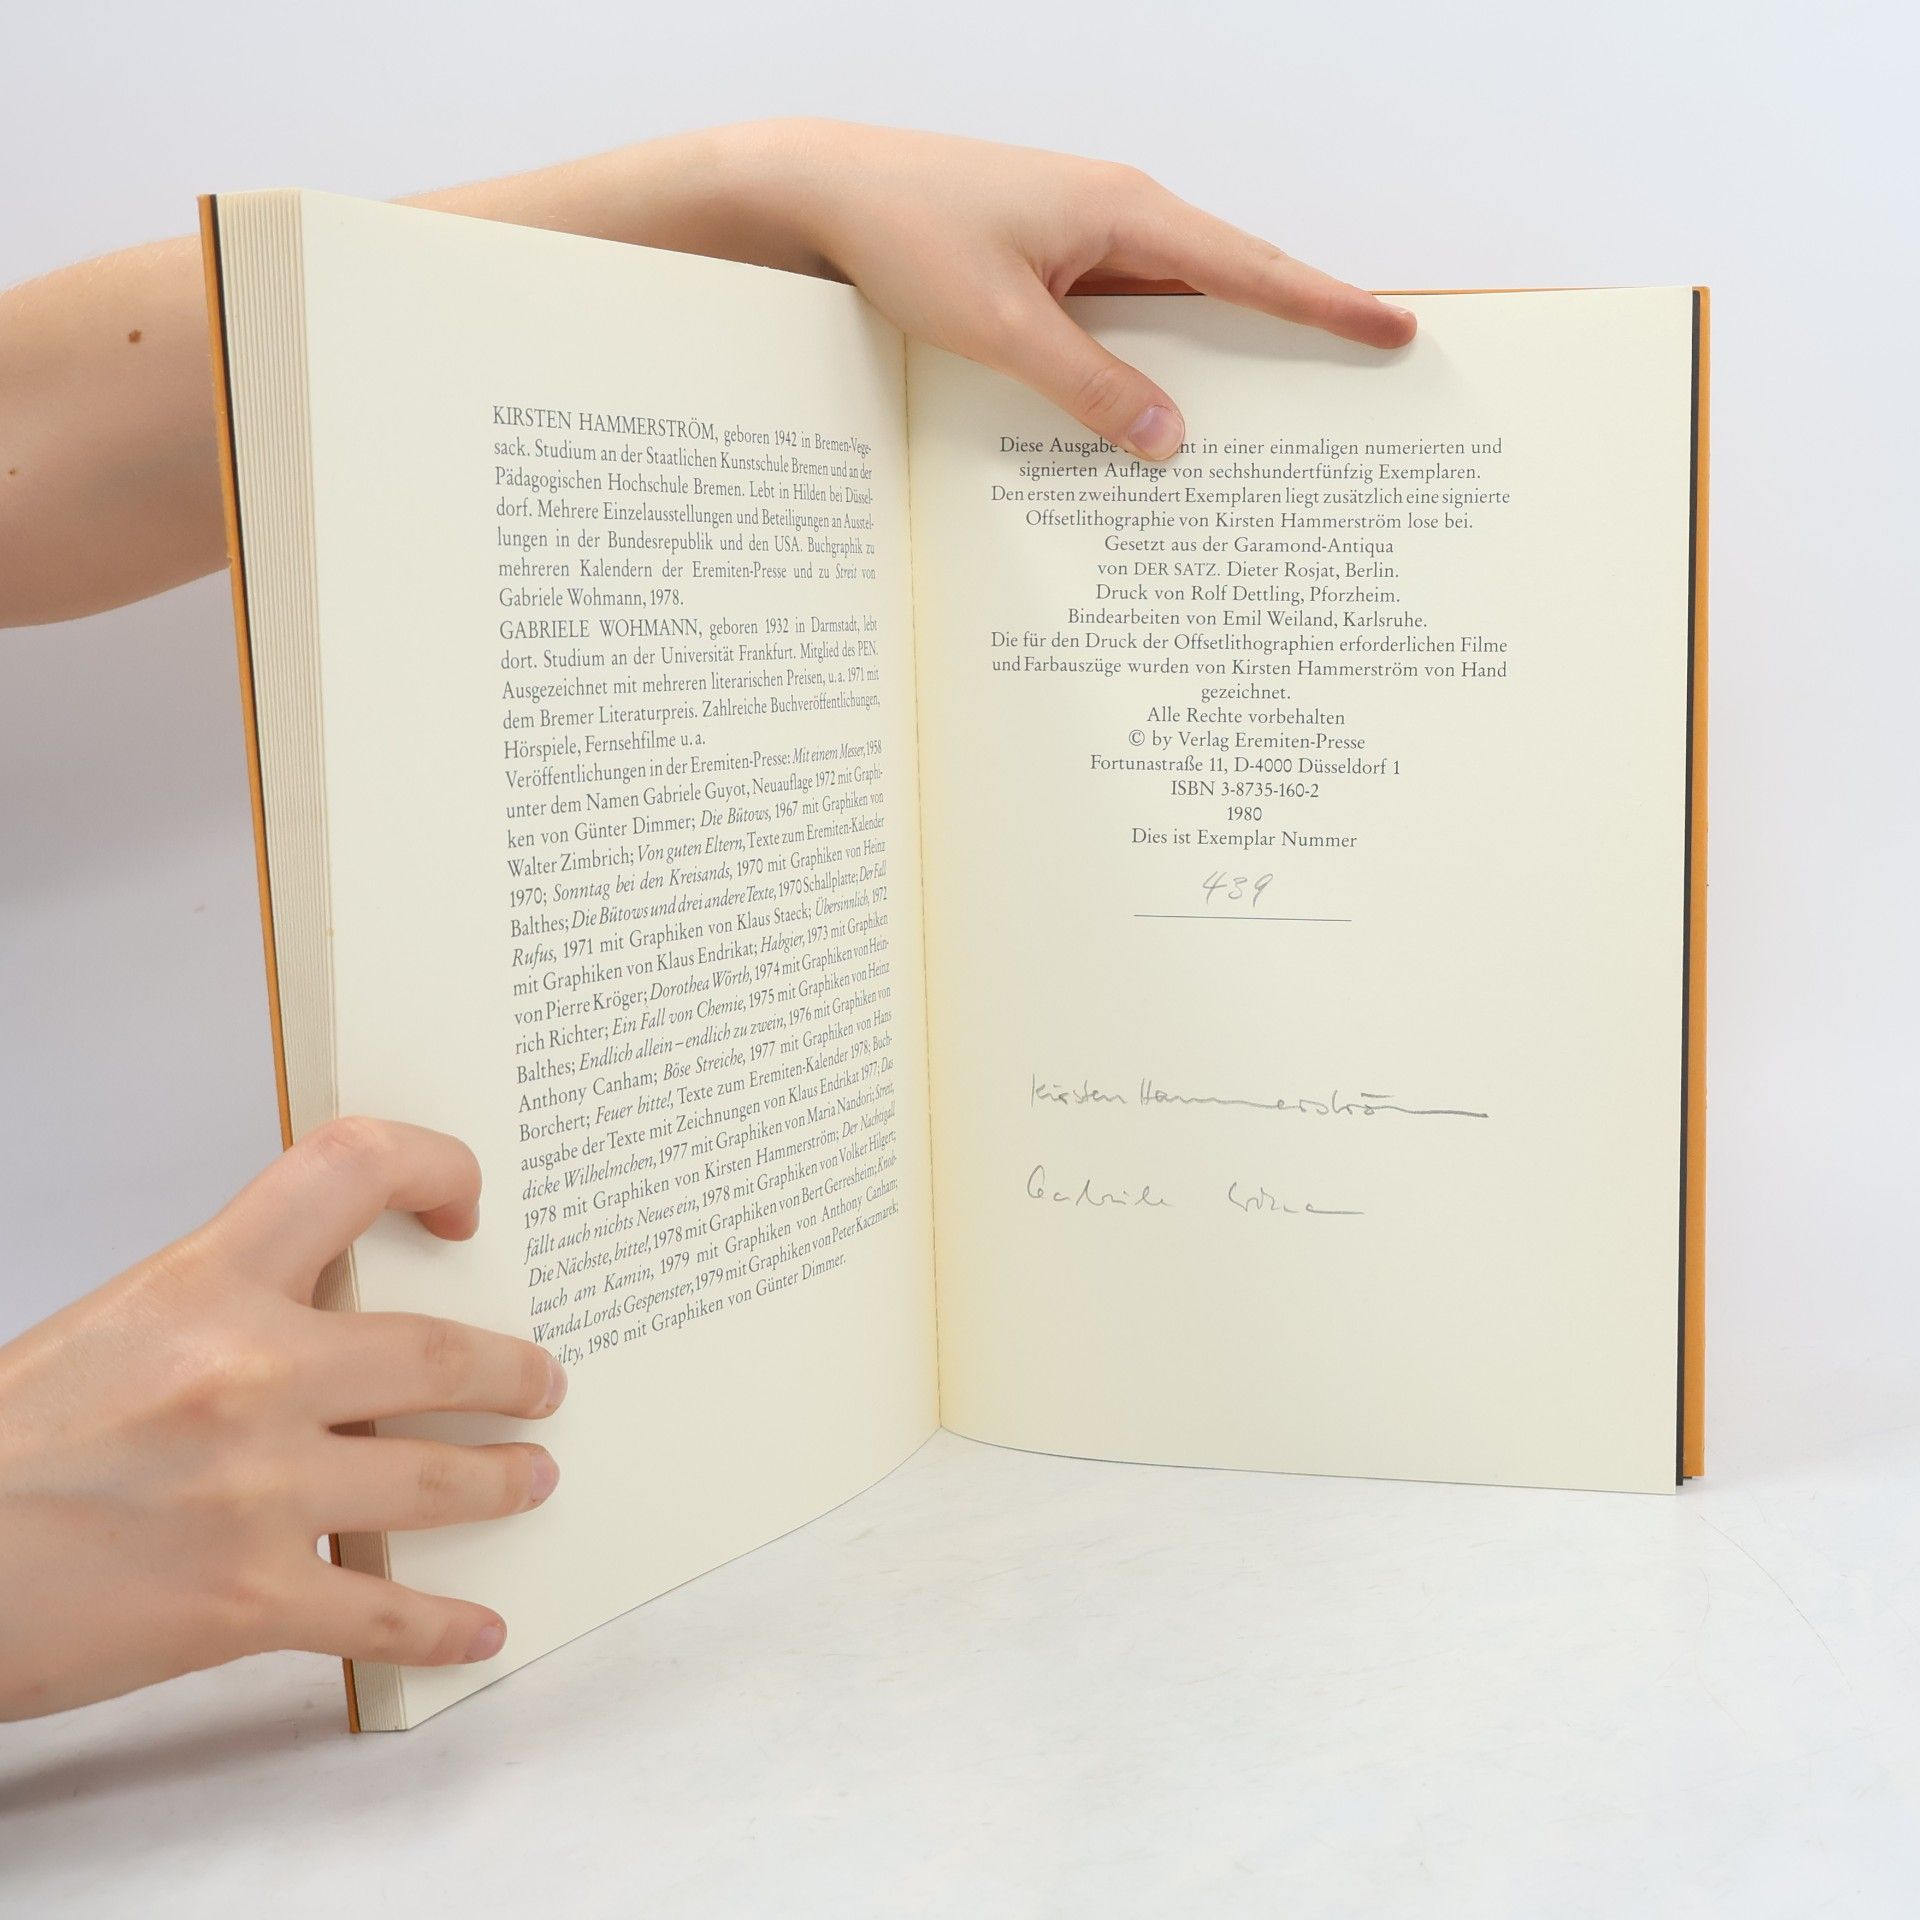 KIRSTEN HAMMERSTRÖM, geboren 1942 in Bremen-Vege-
sack. Studium an der Staatlichen Kunstschule Bremen und an der
Pädagogischen Hochschule Bremen. Lebt in Hilden bei Düssel-
dorf. Mehrere Einzelausstellungen und Beteiligungen an Ausstel-
lungen in der Bundesrepublik und den USA. Buchgraphik zu
mehreren Kalendern der Eremiten-Presse und zu Streit von
Gabriele Wohmann, 1978.
GABRIELE WOHMANN, geboren 1932 in Darmstadt, lebt
dort. Studium an der Universität Frankfurt. Mitglied des PEN.
Ausgezeichnet mit mehreren literarischen Preisen, u. a. 1971 mit
dem Bremer Literaturpreis. Zahlreiche Buchveröffentlichungen,
Hörspiele, Fernsehfilme u. a.
Veröffentlichungen in der Eremiten-Presse: Mit einem Messer, 1958
unter dem Namen Gabriele Guyot, Neuauflage 1972 mit Graphi-
ken von Günter Dimmer; Die Bütows, 1967 mit Graphiken von
Walter Zimbrich; Von guten Eltern, Texte zum Eremiten-Kalender
1970; Sonntag bei den Kreisands, 1970 mit Graphiken von Heinz
Balthes; Die Bütows und drei andere Texte, 1970 Schallplatte; Der Fall
Rufus, 1971 mit Graphiken von Klaus Staeck; Übersinnlich, 1972
mit Graphiken von Klaus Endrikat; Habgier, 1973 mit Graphiken
von Pierre Kröger; Dorothea Wörth, 1974 mit Graphiken von Hein-
rich Richter; Ein Fall von Chemie, 1975 mit Graphiken von Heinz
Balthes; Endlich allein – endlich zu zwein, 1976 mit Graphiken von
Anthony Canham; Böse Streiche, 1977 mit Graphiken von Hans
Borchert; Feuer bitte!, Texte zum Eremiten-Kalender 1978; Buch-
ausgabe der Texte mit Zeichnungen von Klaus Endrikat 1977; Das
dicke Wilhelmchen, 1977 mit Graphiken von Maria Nandori; Streit,
1978 mit Graphiken von Kirsten Hammerström; Der Nachtigall
fällt auch nichts Neues ein, 1978 mit Graphiken von Volker Hilgert;
Die Nächste, bitte!, 1978 mit Graphiken von Bert Gerresheim; Knob-
lauch am Kamin, 1979 mit Graphiken von Anthony Canham;
Wanda Lords Gespenster, 1979 mit Graphiken von Peter Kaczmarek;
1980 mit Graphiken von Günter Dimmer.
Diese Ausgabe in einer einmaligen numerierten und
signierten Auflage von sechshundertfünfzig Exemplaren.
Den ersten zweihundert Exemplaren liegt zusätzlich eine signierte
Offsetlithographie von Kirsten Hammerström lose bei.
Gesetzt aus der Garamond-Antiqua
von DER SATZ. Dieter Rosjat, Berlin.
Druck von Rolf Dettling, Pforzheim.
Bindearbeiten von Emil Weiland, Karlsruhe.
Die für den Druck der Offsetlithographien erforderlichen Filme
und Farbauszüge wurden von Kirsten Hammerström von Hand
gezeichnet.
Alle Rechte vorbehalten
© by Verlag Eremiten-Presse
Fortunastraße 11, D-4000 Düsseldorf 1
ISBN 3-8735-160-2
1980
Dies ist Exemplar Nummer
439
Kirsten Hammerström
Gabriele Wohmann